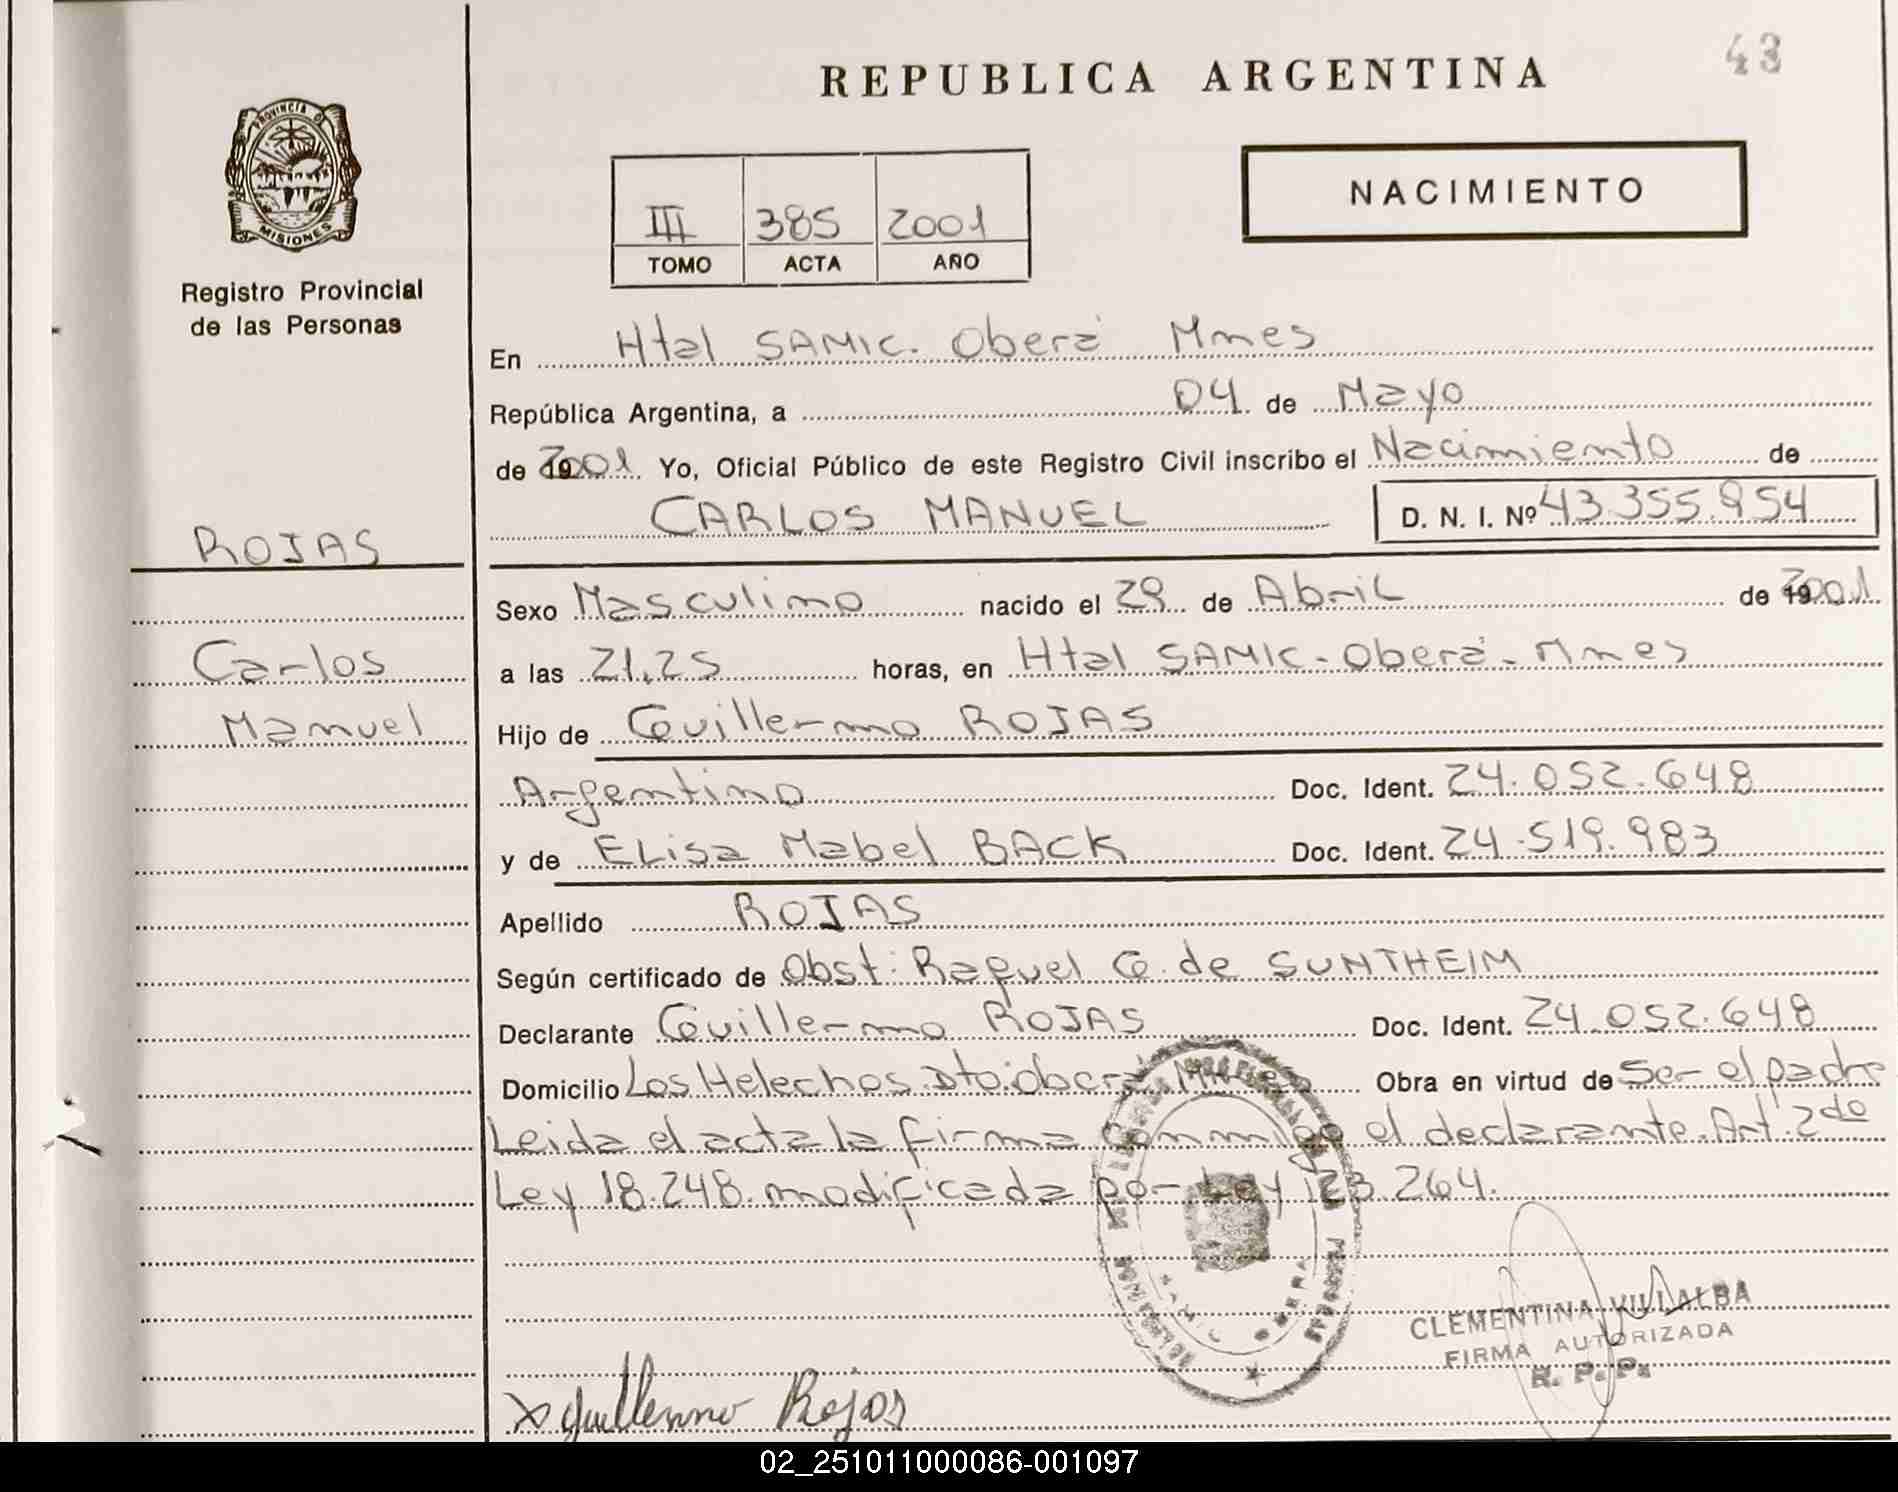 43
REPUBLICA ARGENTINA
PROVINCIA DE
MISIONES
Registro Provincial
de las Personas
NACIMIENTO
III 385 2001
TOMO ACTA AÑO
En Htal SAMIC. Oberá Mnes
República Argentina, a 04 de Mayo
de 2001 Yo, Oficial Público de este Registro Civil inscribo el Nacimiento de
CARLOS MANUEL D. N. I. Nº 43.355.954
ROJAS
Carlos
Manuel
Sexo Masculino nacido el 29 de Abril de 2001
a las 21,25 horas, en Htal SAMIC - Oberá - Mnes
Hijo de Guillermo ROJAS
Argentino Doc. Ident. 24.052.648
y de ELisa Mabel BACK Doc. Ident. 24.519.983
Apellido ROJAS
Según certificado de Obst: Raquel G. de SUNTHEIM
Declarante Guillermo ROJAS Doc. Ident. 24.052.648
Domicilio Los Helechos. Dto. Oberá Mnes Obra en virtud de Ser el padre
Leida el acta la firma conmigo el declarante. Art. 2do
Ley 18.248. modificada por Ley 23.264.
CLEMENTINA VILLALBA
FIRMA AUTORIZADA
R. P. P.
x guillermo Rojas
02_251011000086-001097